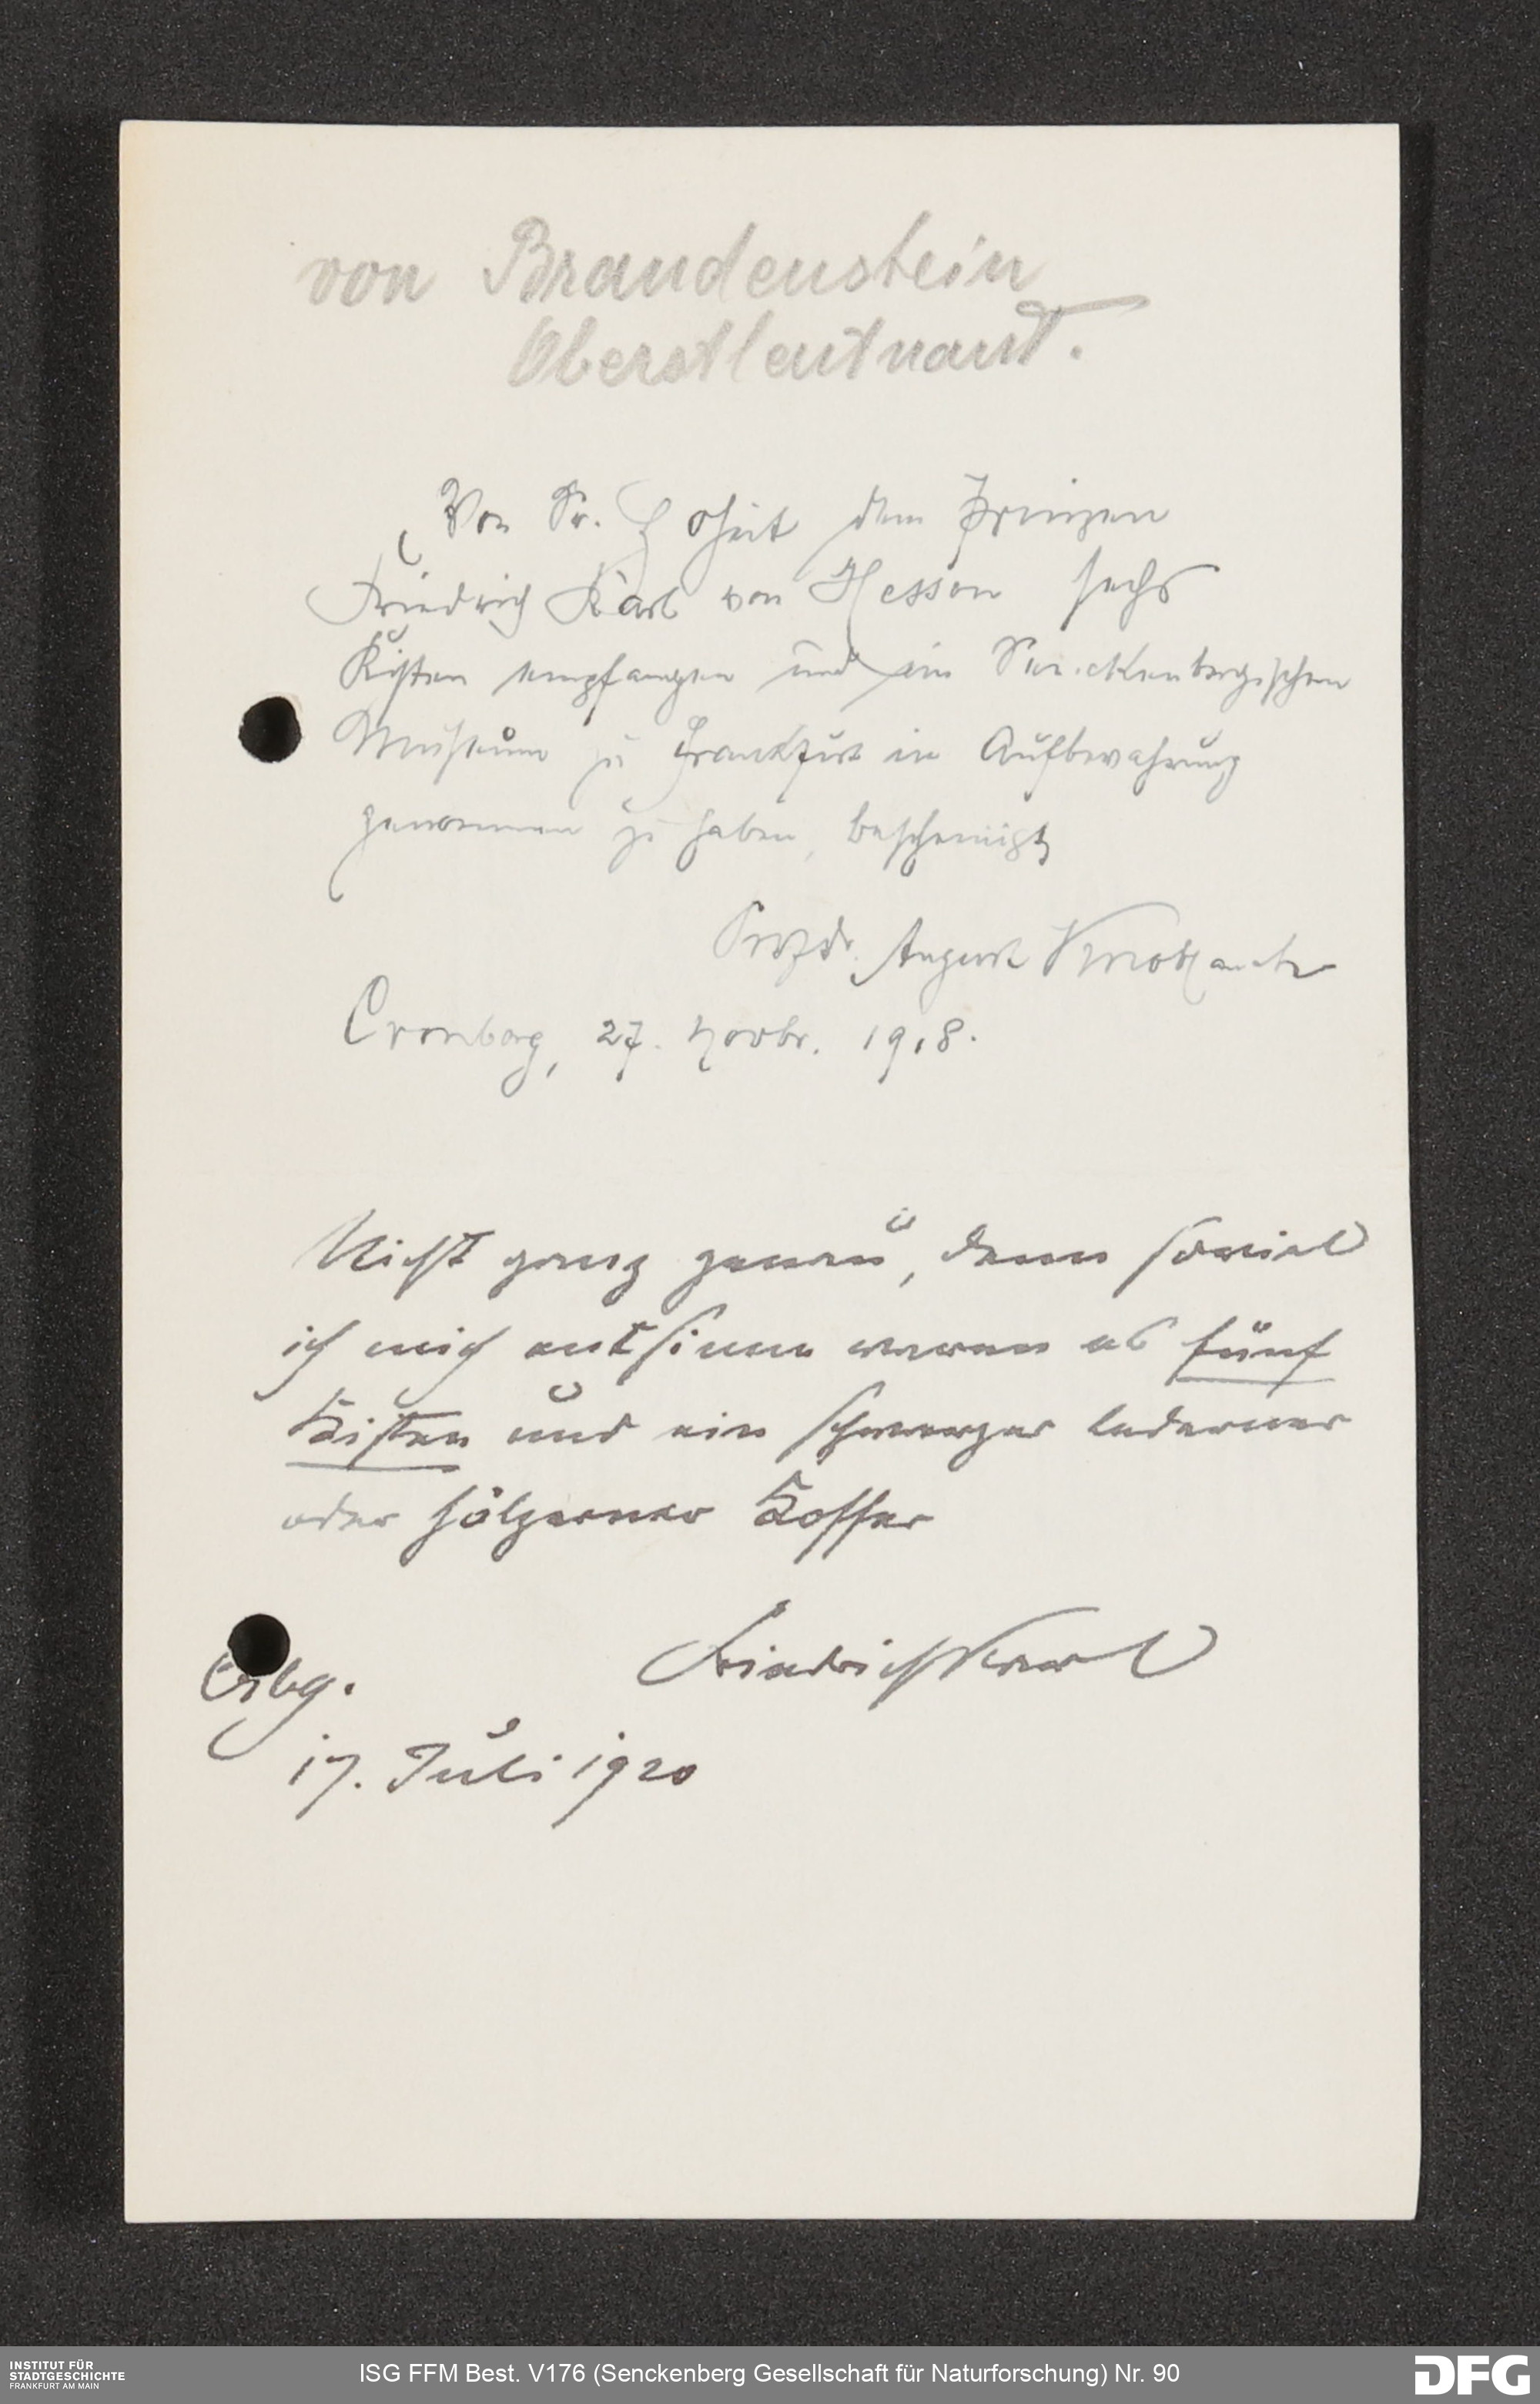 von Brandenstein
Oberstleutnant.
Von Sr. Hoheit dem Prinzen
Friedrich Karl von Hessen sechs
Kisten empfangen und im Senckenbergischen
Museum zu Frankfurt in Aufbewahrung
genommen zu haben, bescheinigt
Prof. Dr. August Knoblauch
Cronberg, 27. Novbr. 1918.
Nicht ganz genau, denn soviel
ich mich entsinne waren es fünf
Kisten und ein schwarzer lederner
oder hölzerner Koffer
Friedrich Karl
Crbg.
17. Juli 1920
INSTITUT FÜR
STADTGESCHICHTE
FRANKFURT AM MAIN
ISG FFM Best. V176 (Senckenberg Gesellschaft für Naturforschung) Nr. 90
DFG